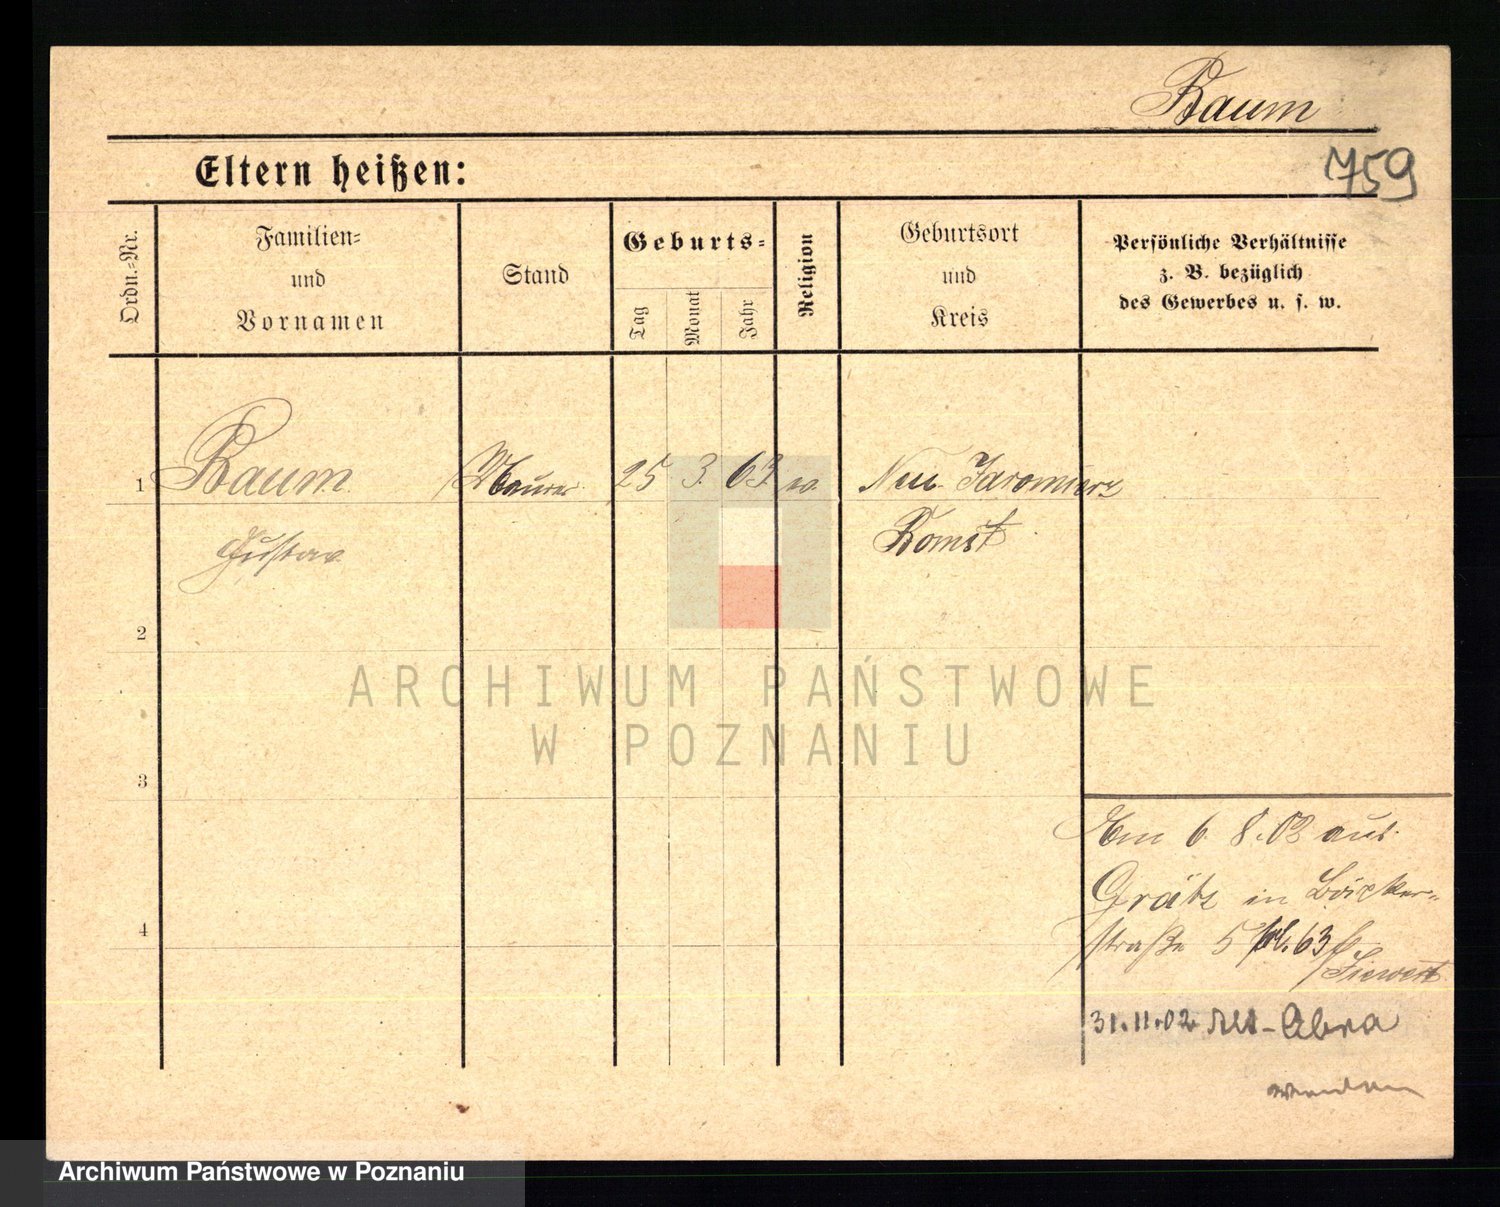 Baum
759
Eltern heißen:
Ordn.-Nr.
Familien-
und
Vornamen
Stand
Geburts-
Tag
Monat
Jahr
Religion
Geburtsort
und
Kreis
Persönliche Verhältnisse
z. B. bezüglich
des Gewerbes u. s. w.
1 Baum Maurer 25 3. 63. Neu Jaromierz
Gustav Bomst
2
3
4
6. 8. 02 aus
Grätz in Bäcker-
straße 5 bl. 63
Siewert
31.11.02 Alt-
wenden
ARCHIWUM PAŃSTWOWE
W POZNANIU
Archiwum Państwowe w Poznaniu